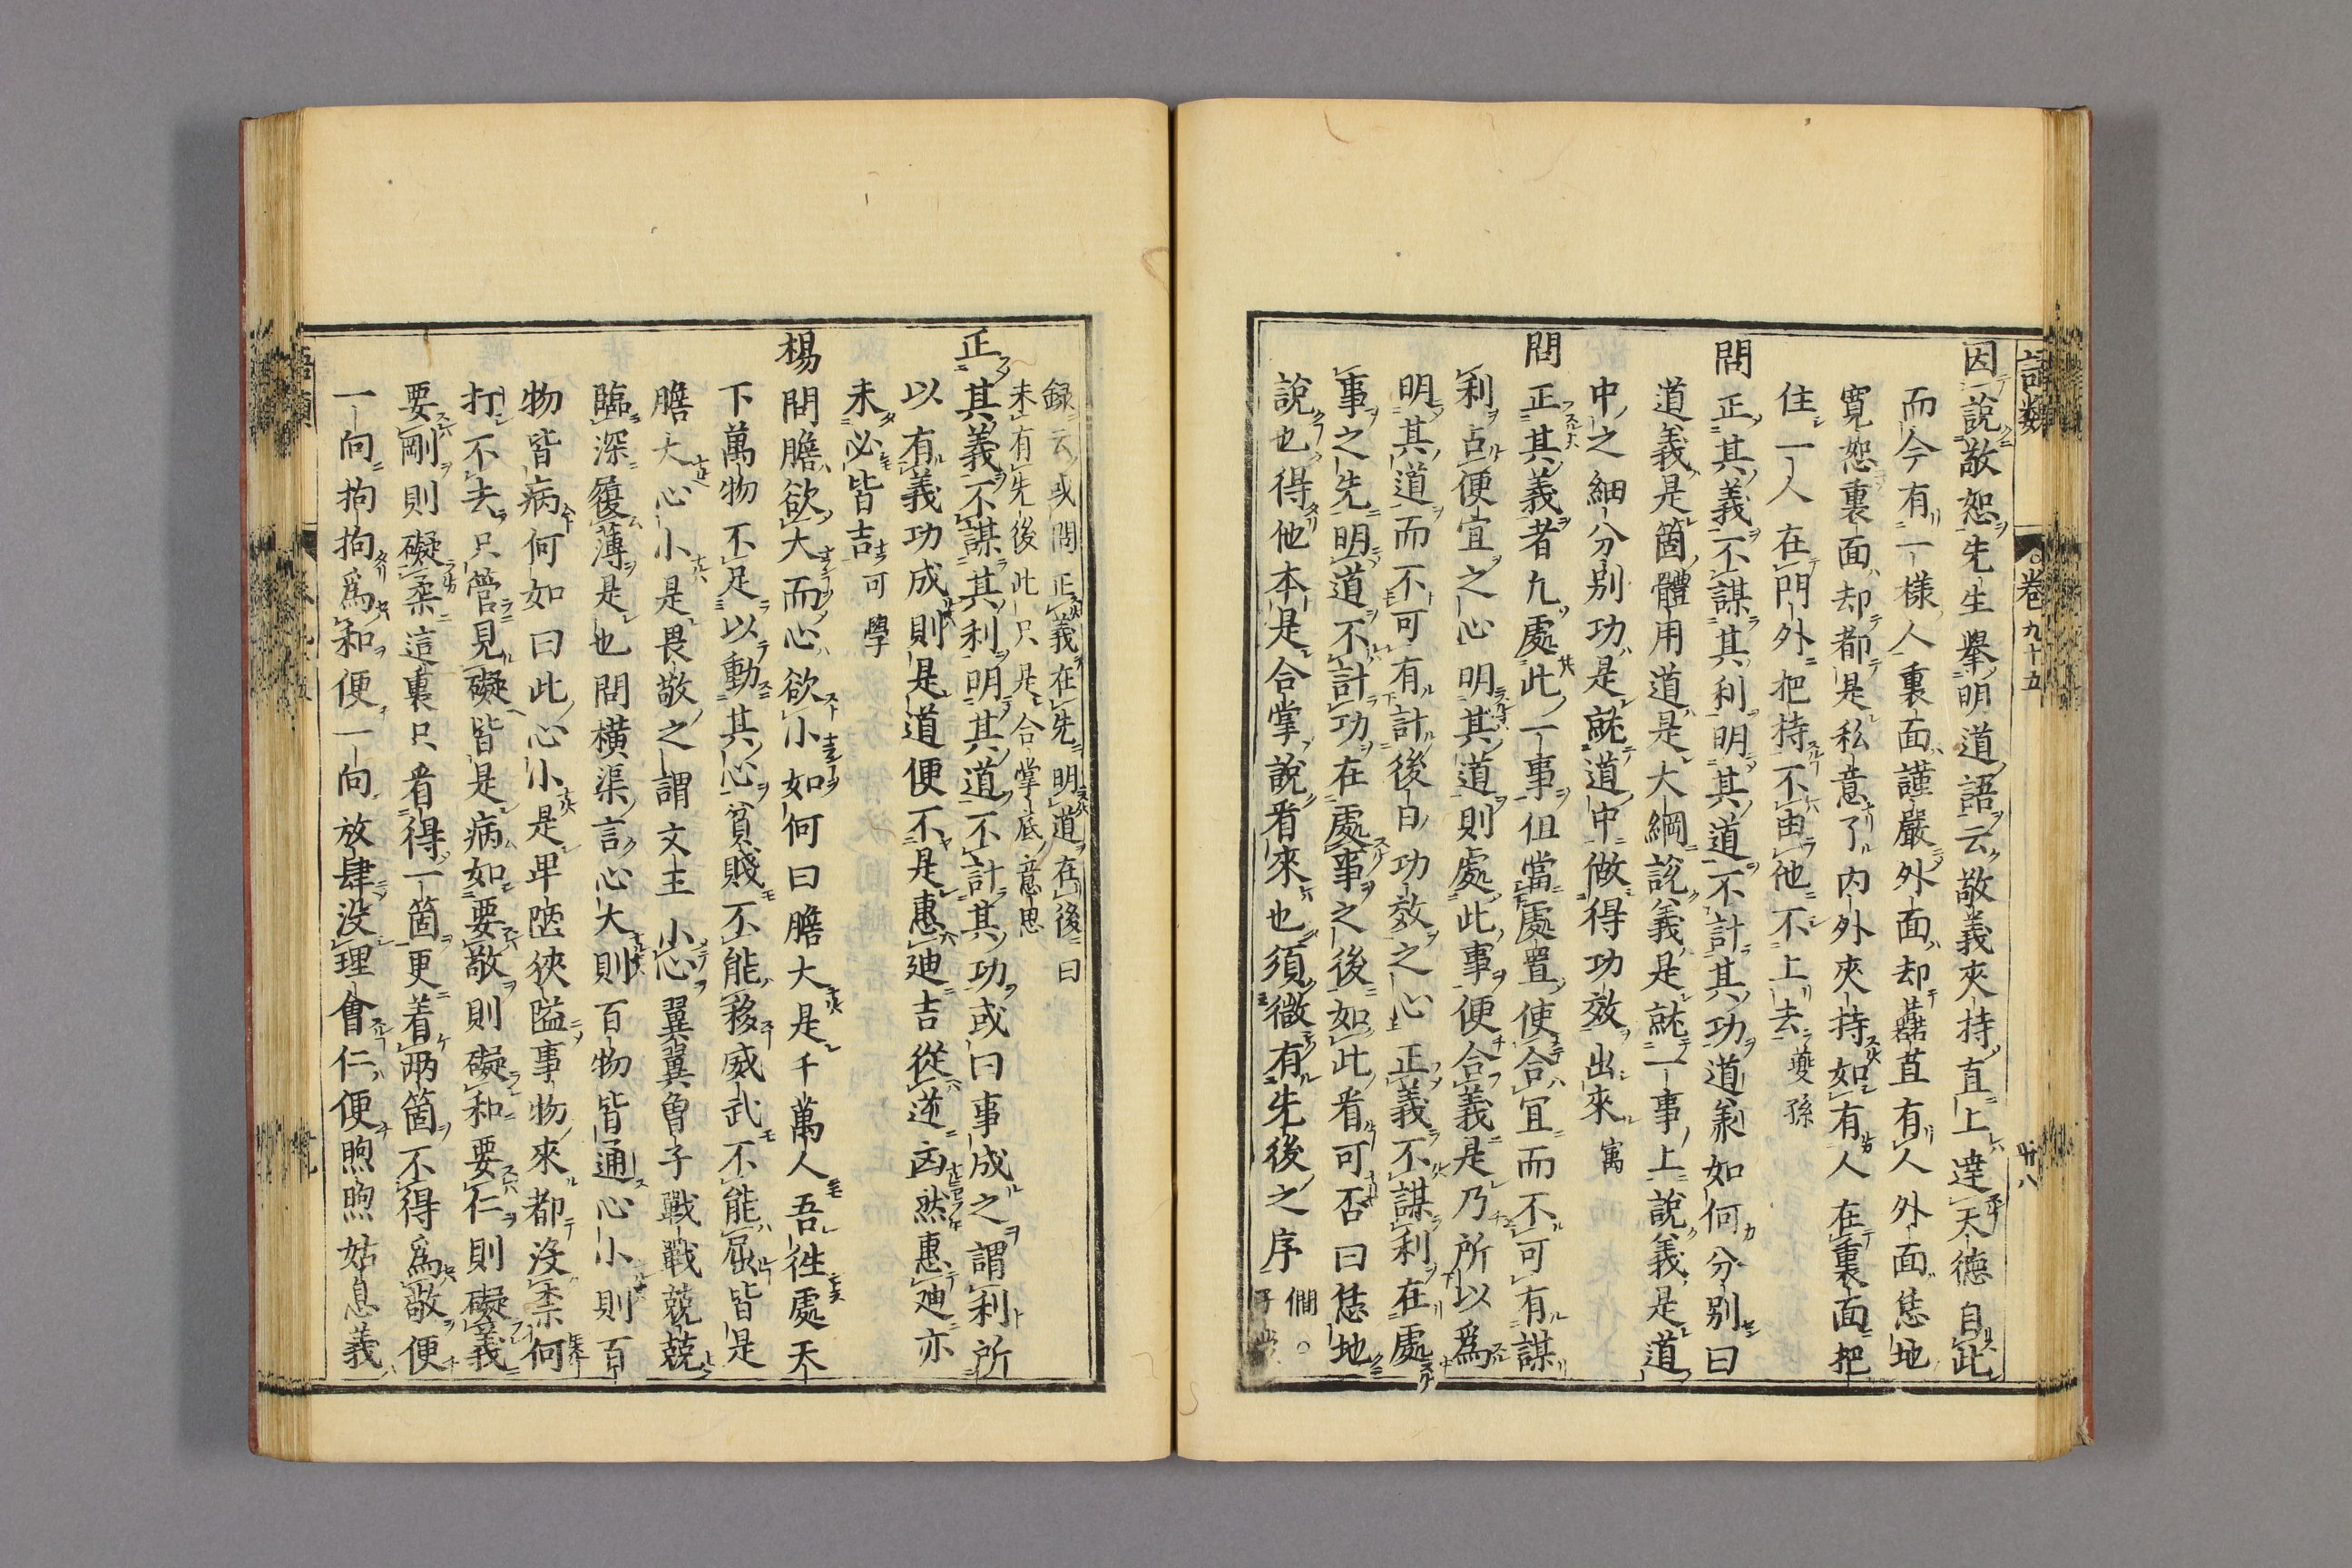 語類
卷九十五
卅八
因說敬恕先生擧明道語云敬義夾持直上達天德自此
而今有一樣人裏面謹嚴外面却蘁苴有人外面恁地
寬恕裏面却都是私意了內外夾持如有人在裏面把
住一人在門外把持不由他不上去 夔孫
問正其義不謀其利明其道不計其功道義如何分別曰
道義是箇體用道是大綱說義是就一事上說義是道
中之細分別功是就道中做得功效出來 㝢
問正其義者凢處此一事但當處置使合冝而不可有謀
利占便宜之心明其道則處此事便合義是乃所以爲
明其道而不可有計後日功效之心正義不謀利在處
事之先明道不計功在處事之後如此看可否曰恁地
說也得他本是合掌說看來也須微有先後之序 僩○
録云或問正義在先明道在後曰
未有先後此只是合掌底意思
正其義不謀其利明其道不計其功或曰事成之謂利所
以有義功成則是道便不是惠廸吉從逆凶然惠廸亦
未必皆吉 可學
楊問膽欲大而心欲小如何曰膽大是千萬人吾徃處天
下萬物不足以動其心貧賤不能移威武不能屈皆是
膽大心小是畏敬之謂文王小心翼翼曾子戰戰兢兢
臨深履薄是也問橫渠言心大則百物皆通心小則百
物皆病何如曰此心小是卑陋狹隘事物來都沒柰何
打不去只管見礙皆是病如要敬則礙和要仁則礙義
要剛則礙柔這裏只看得一箇更着兩箇不得爲敬便
一向拘拘爲和便一向放肆沒理會仁便煦煦姑息義